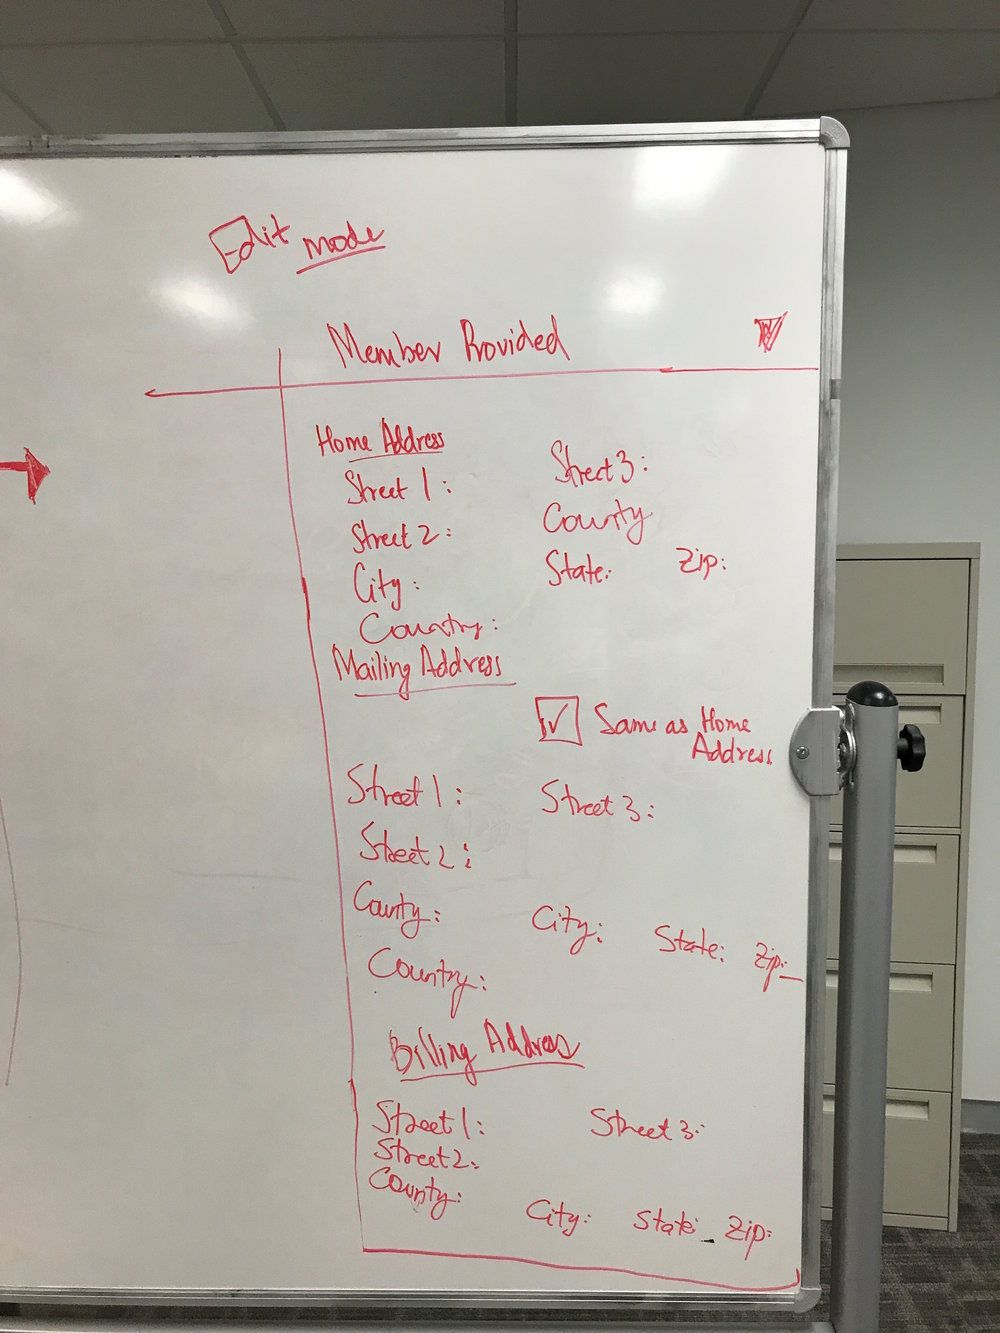 Edit mode
Member Provided
Home Address
Street 1: Street 3:
Street 2: County
City: State: Zip:
Country:
Mailing Address
Same as Home
Address
Street 1: Street 3:
Street 2:
County: City: State: Zip:
Country:
Billing Address
Street 1: Street 3:
Street 2:
County:
City: State: Zip: